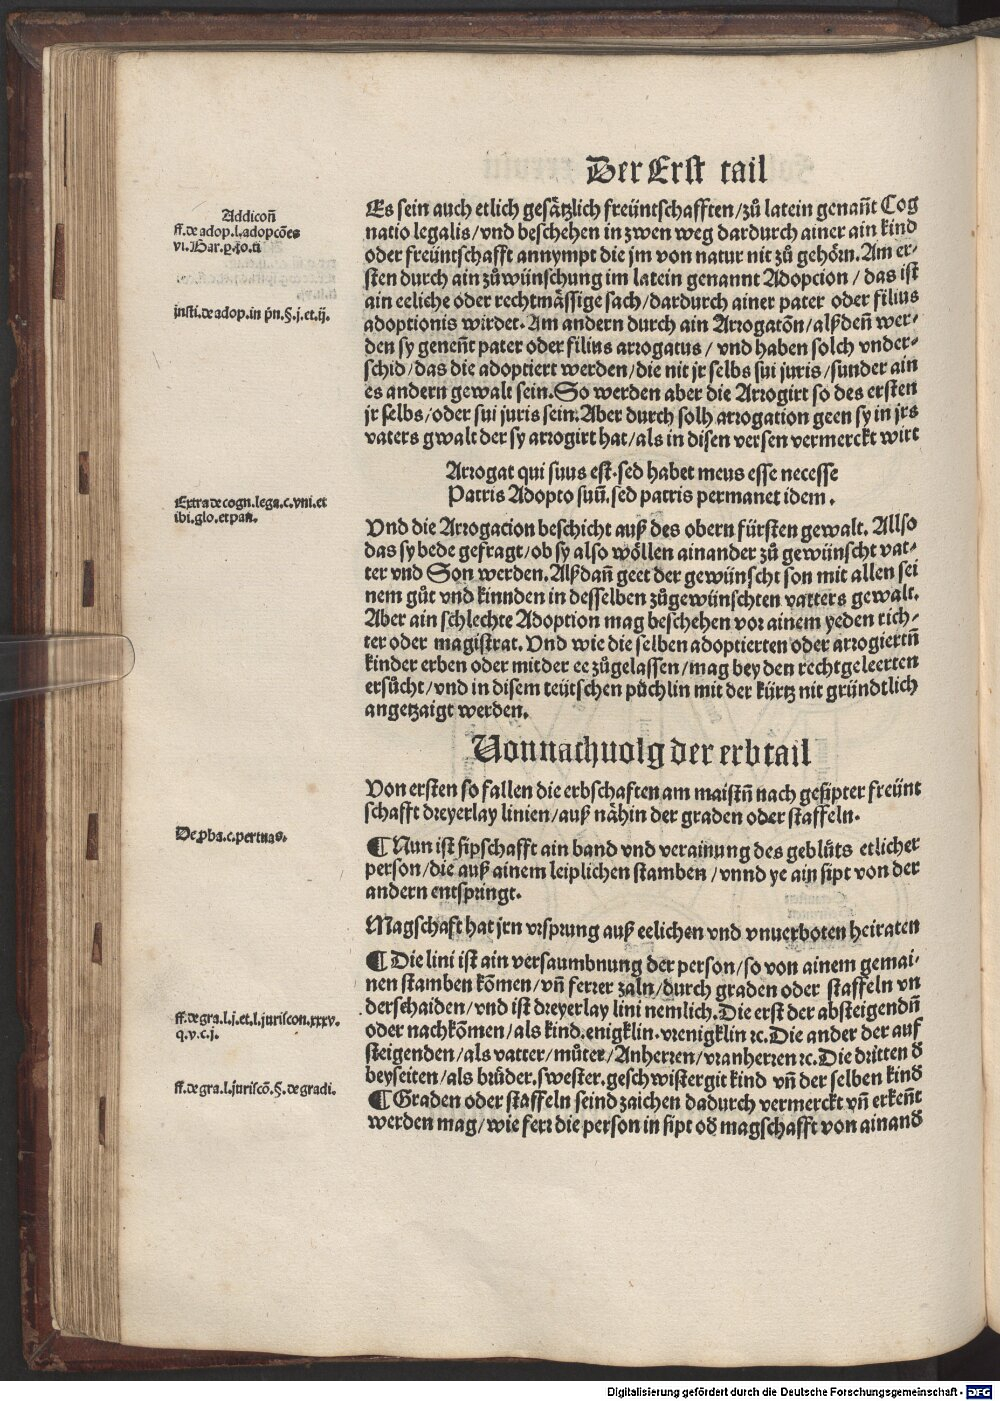 Der Erst tail
Addicoñ
ff. de adop. l. adopcões
vi. Bar. p. to. ti
insti. de adop. in pn̄. §. j. et. ij.
Extra de cogn. lega. c. vni. et
ibi. glo. et pan.
De pba. c. pertuas.
ff. de gra. l. j. et. l. juriscon. xxxv.
q. v. c. j.
ff. de gra. l. juriscō. §. de gradi.
Es sein auch etlich gesätzlich freüntschafften/zů latein genañt Cog
natio legalis/vnd beschehen in zwen weg dardurch ainer ain kind
oder freüntschafft annympt die jm von natur nit zů gehörn. Am er-
sten durch ain zůwünschung im latein genannt Adopcion/das ist
ain eeliche oder rechtmässige sach/dardurch ainer pater oder filius
adoptionis wirdet. Am andern durch ain Arrogatōn/alßdeñ wer-
den sy geneñt pater oder filius arrogatus/vnd haben solch vnder-
schid/das die adoptiert werden/die nit jr selbs sui juris/sunder ain
es andern gewalt sein. So werden aber die Arrogirt so des ersten
jr selbs/oder sui juris sein. Aber durch solh arrogation geen sy in jrs
vaters gwalt der sy arrogirt hat/als in disen versen vermerckt wirt
Arrogat qui suus est. sed habet meus esse necesse
Patris Adopto suū. sed patris permanet idem.
Vnd die Arrogacion beschicht auß des obern fürsten gewalt. Allso
das sy bede gefragt/ob sy also wöllen ainander zů gewünscht vat-
ter vnd Son werden. Alßdañ geet der gewünscht son mit allen sei
nem gůt vnd kinnden in desselben zůgewünschten vatters gewalt.
Aber ain schlechte Adoption mag beschehen vor ainem yeden rich-
ter oder magistrat. Vnd wie die selben adoptierten oder arrogiertñ
kinder erben oder mit der ee zůgelassen/mag bey den rechtgeleerten
ersůcht/vnd in disem teütschen půchlin mit der kürtz nit gründtlich
angetzaigt werden.
Von nachuolg der erbtail
Von ersten so fallen die erbschaften am maistñ nach gesipter freünt
schafft dreyerlay linien/auß nähin der graden oder staffeln.
¶ Nun ist sipschafft ain band vnd verainung des geblůts etlicher
person/die auß ainem leiplichen stamben/vnnd ye ain sipt von der
andern entspringt.
Magschaft hat jrn vrsprung auß eelichen vnd vnuerboten heiraten
¶ Die lini ist ain versaumbnung der person/so von ainem gemai-
nen stamben kōmen/vñ ferrer zaln/durch graden oder staffeln vn
derschaiden/vnd ist dreyerlay lini nemlich. Die erst der absteigendñ
oder nachkōmen/als kind. enigklin. vrenigklin ꝛc. Die ander der auf
steigenden/als vatter/můter/Anherren/vranherren ꝛc. Die dritten d̄
beyseiten/als brüder. swester. geschwistergit kind vñ der selben kind
¶ Graden oder staffeln seind zaichen dadurch vermerckt vñ erkeñt
werden mag/wie ferr die person in sipt od̄ magschafft von ainand̄
Digitalisierung gefördert durch die Deutsche Forschungsgemeinschaft - DFG